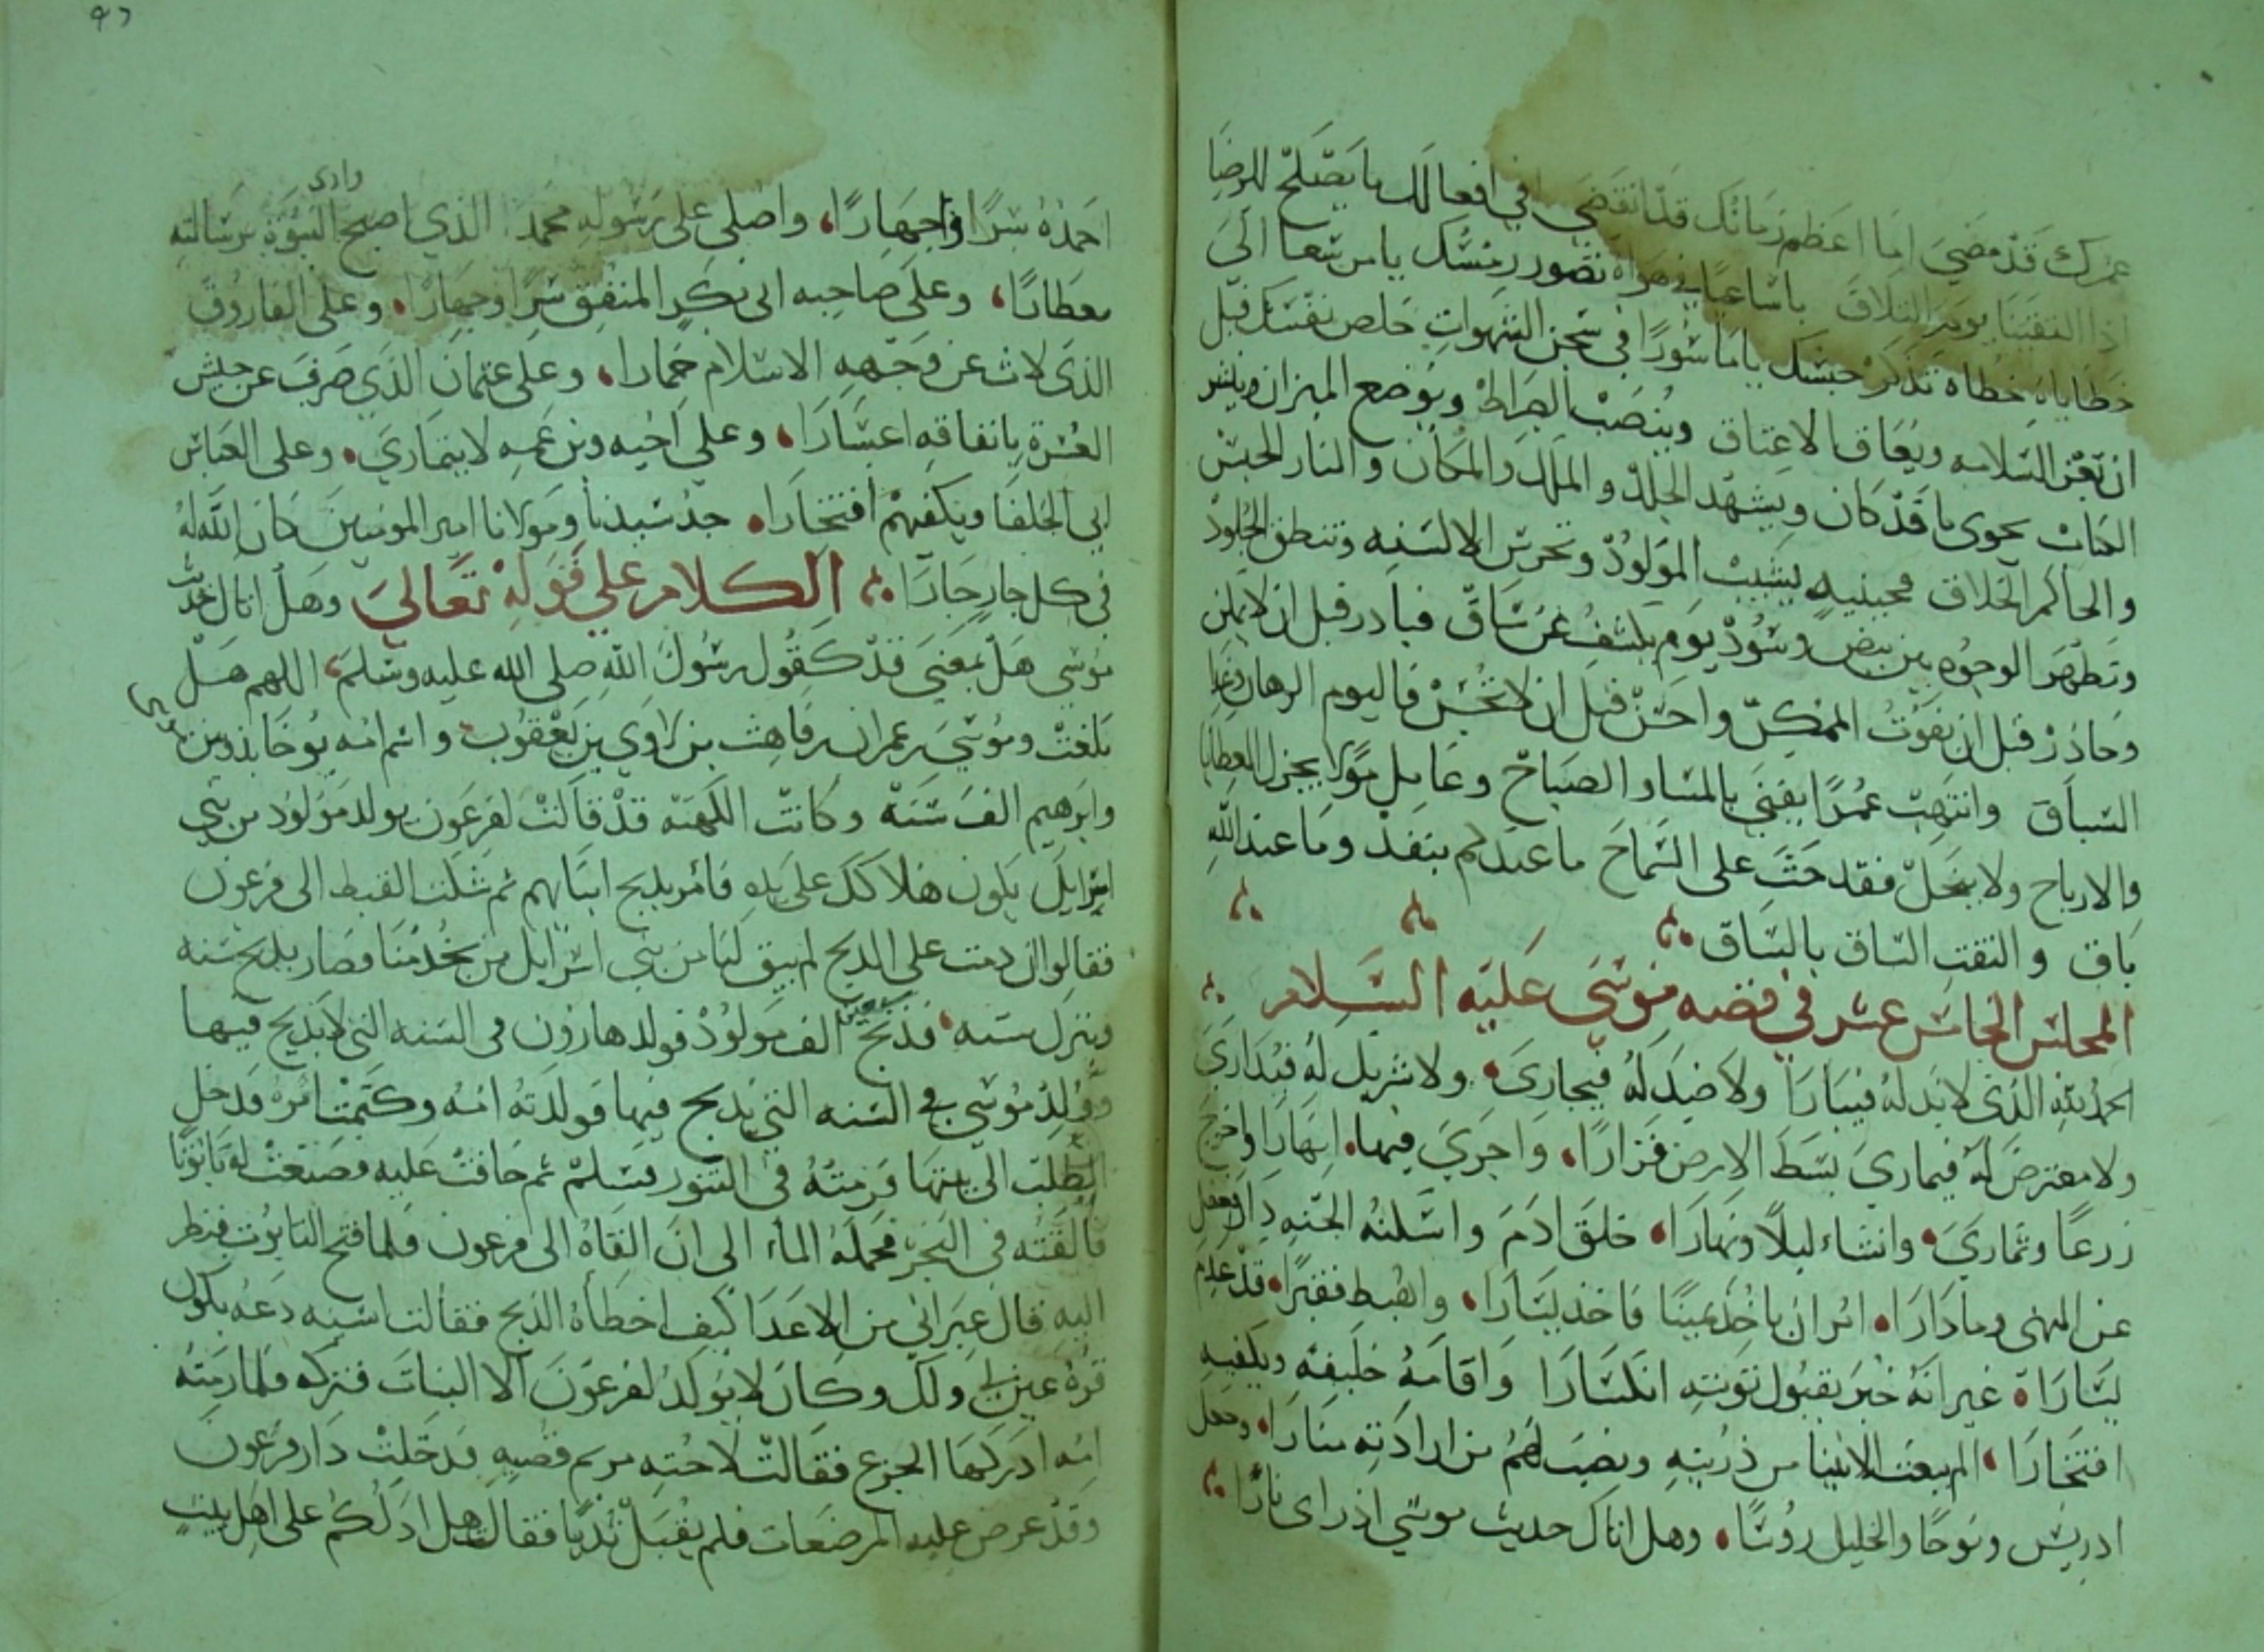 عمرك قد مضي اما اعظم زمانك قد انقضي في افعالك ما يصلح للرضا
اذا التقينا يوم التلاق يا ساعيا في هواه تصور رمسك يا من سعا الى
خطاياه خطاه تذكر حبسك يا ماسورا في سجن الشهوات خلص نفسك قبل
ان تعز السلامه ويعاق الاعتاق وينصب الصراط ويوضع الميزان وينشر
الكتاب يحوى ما قد كان ويشهد الجلد والملك والمكان والنار الحبس
والحاكم الخلاق فحينيذ يشيب المولود وتخرس الالسنه وتنطق الجلود
وتظهر الوجوه بين بيض وسود يوم يكشف عن ساق فبادر قبل ان لا يمكن
وحاذر قبل ان يفوت الممكن واحسن قبل ان لا تحسن فاليوم الرهان وغدا
السباق وانتهب عمرا يفنى بالمسا والصباح وعامل مولا يجزل العطايا
والارباح ولا تبخل فقد حث على السماح ما عندكم ينفد وما عند الله
باق والتفت الساق بالساق
المجلس الخامس عشر في قصه موسى عليه السلام
الحمد لله الذى لا ند له فيبارا ولا ضد له فيجارى ولا شريك له فيدارى
ولا معترض له فيمارى بسط الارض قرارا، واجرى فيها انهارا واخرج
زرعا وثمارى وانشاء ليلا ونهارا، خلق ادم واسكنه الجنه دارا فغفل
عن النهى وما دارا، امر ان ياخذ يمينا فاخذ يسارا، واهبط فقيرا قد عدم
يسارا غير انه خبر بقبول توبته انكسارا واقامه خليفه ويكفيه
افتخارا، الم يبعث الانبيا من ذريته ونصب لهم من ارادته منارا، وجعل
ادريس ونوحا والخليل روسا، وهل اتاك حديث موسي اذ راى نارا
٩٦
احمده سرا واجهارا، واصلى على رسوله محمد الذي اصبح النبوة برسالته
معطارا، وعلى صاحبه ابى بكر المنفق سرا وجهارا، وعلى الفاروق
الذى لاث عن وجهه الاسلام خمارا، وعلى عثمان الذي صرف عن جيش
العسرة بانفاقه اعسارا، وعلى اخيه وبن عمه لا يتمارى، وعلى العباس
ابي الخلفا ويكفيهم افتخارا، جد سيدنا ومولانا امير المومنين كان الله له
في كل جار جارا الكلام علي قوله تعالي وهل اتاك حديث
موسي هل بمعني قد كقول رسول الله صلى الله عليه وسلم، اللهم هل
بلغت وموسي بن عمران بن قاهث بن لاوي بن يعقوب واسم امه يوخابذ وبين موسى
وابرهيم الف سنة وكانت الكهنة قد قالت لفرعون يولد مولود من بني
اسرايل يكون هلاكك على يده فامر بذبح ابنايهم ثم شكت القبط الى فرعون
فقالوا ان دمت على الذبح لم يبق لنا من بني اسرايل من يخدمنا فصار يذبح سنه
ويترك سنه فذبح سبعين الف مولود فولد هارون في السنه التي لا يذبح فيها
وولد موسي في السنه التي يذبح فيها فولدته امه وكتمت امره فدخل
الطلب الى بيتها فرمته في التنور فسلم ثم خافت عليه فصنعت له تابوتا
فالقته في البحر فحمله الماء الى ان القاه الى فرعون فلما فتح التابوت فنظر
اليه قال عبراني من الاعدا كيف اخطاه الذبح فقالت اسيه دعه يكون
قرة عين لي ولك وكان لا يولد لفرعون الا البنات فتركه فلما رمته
امه ادركها الجزع فقالت لاخته مريم قصيه فدخلت دار فرعون
وقد عرض عليه المرضعات فلم يقبل ثديا فقالت هل ادلكم على اهل بيت